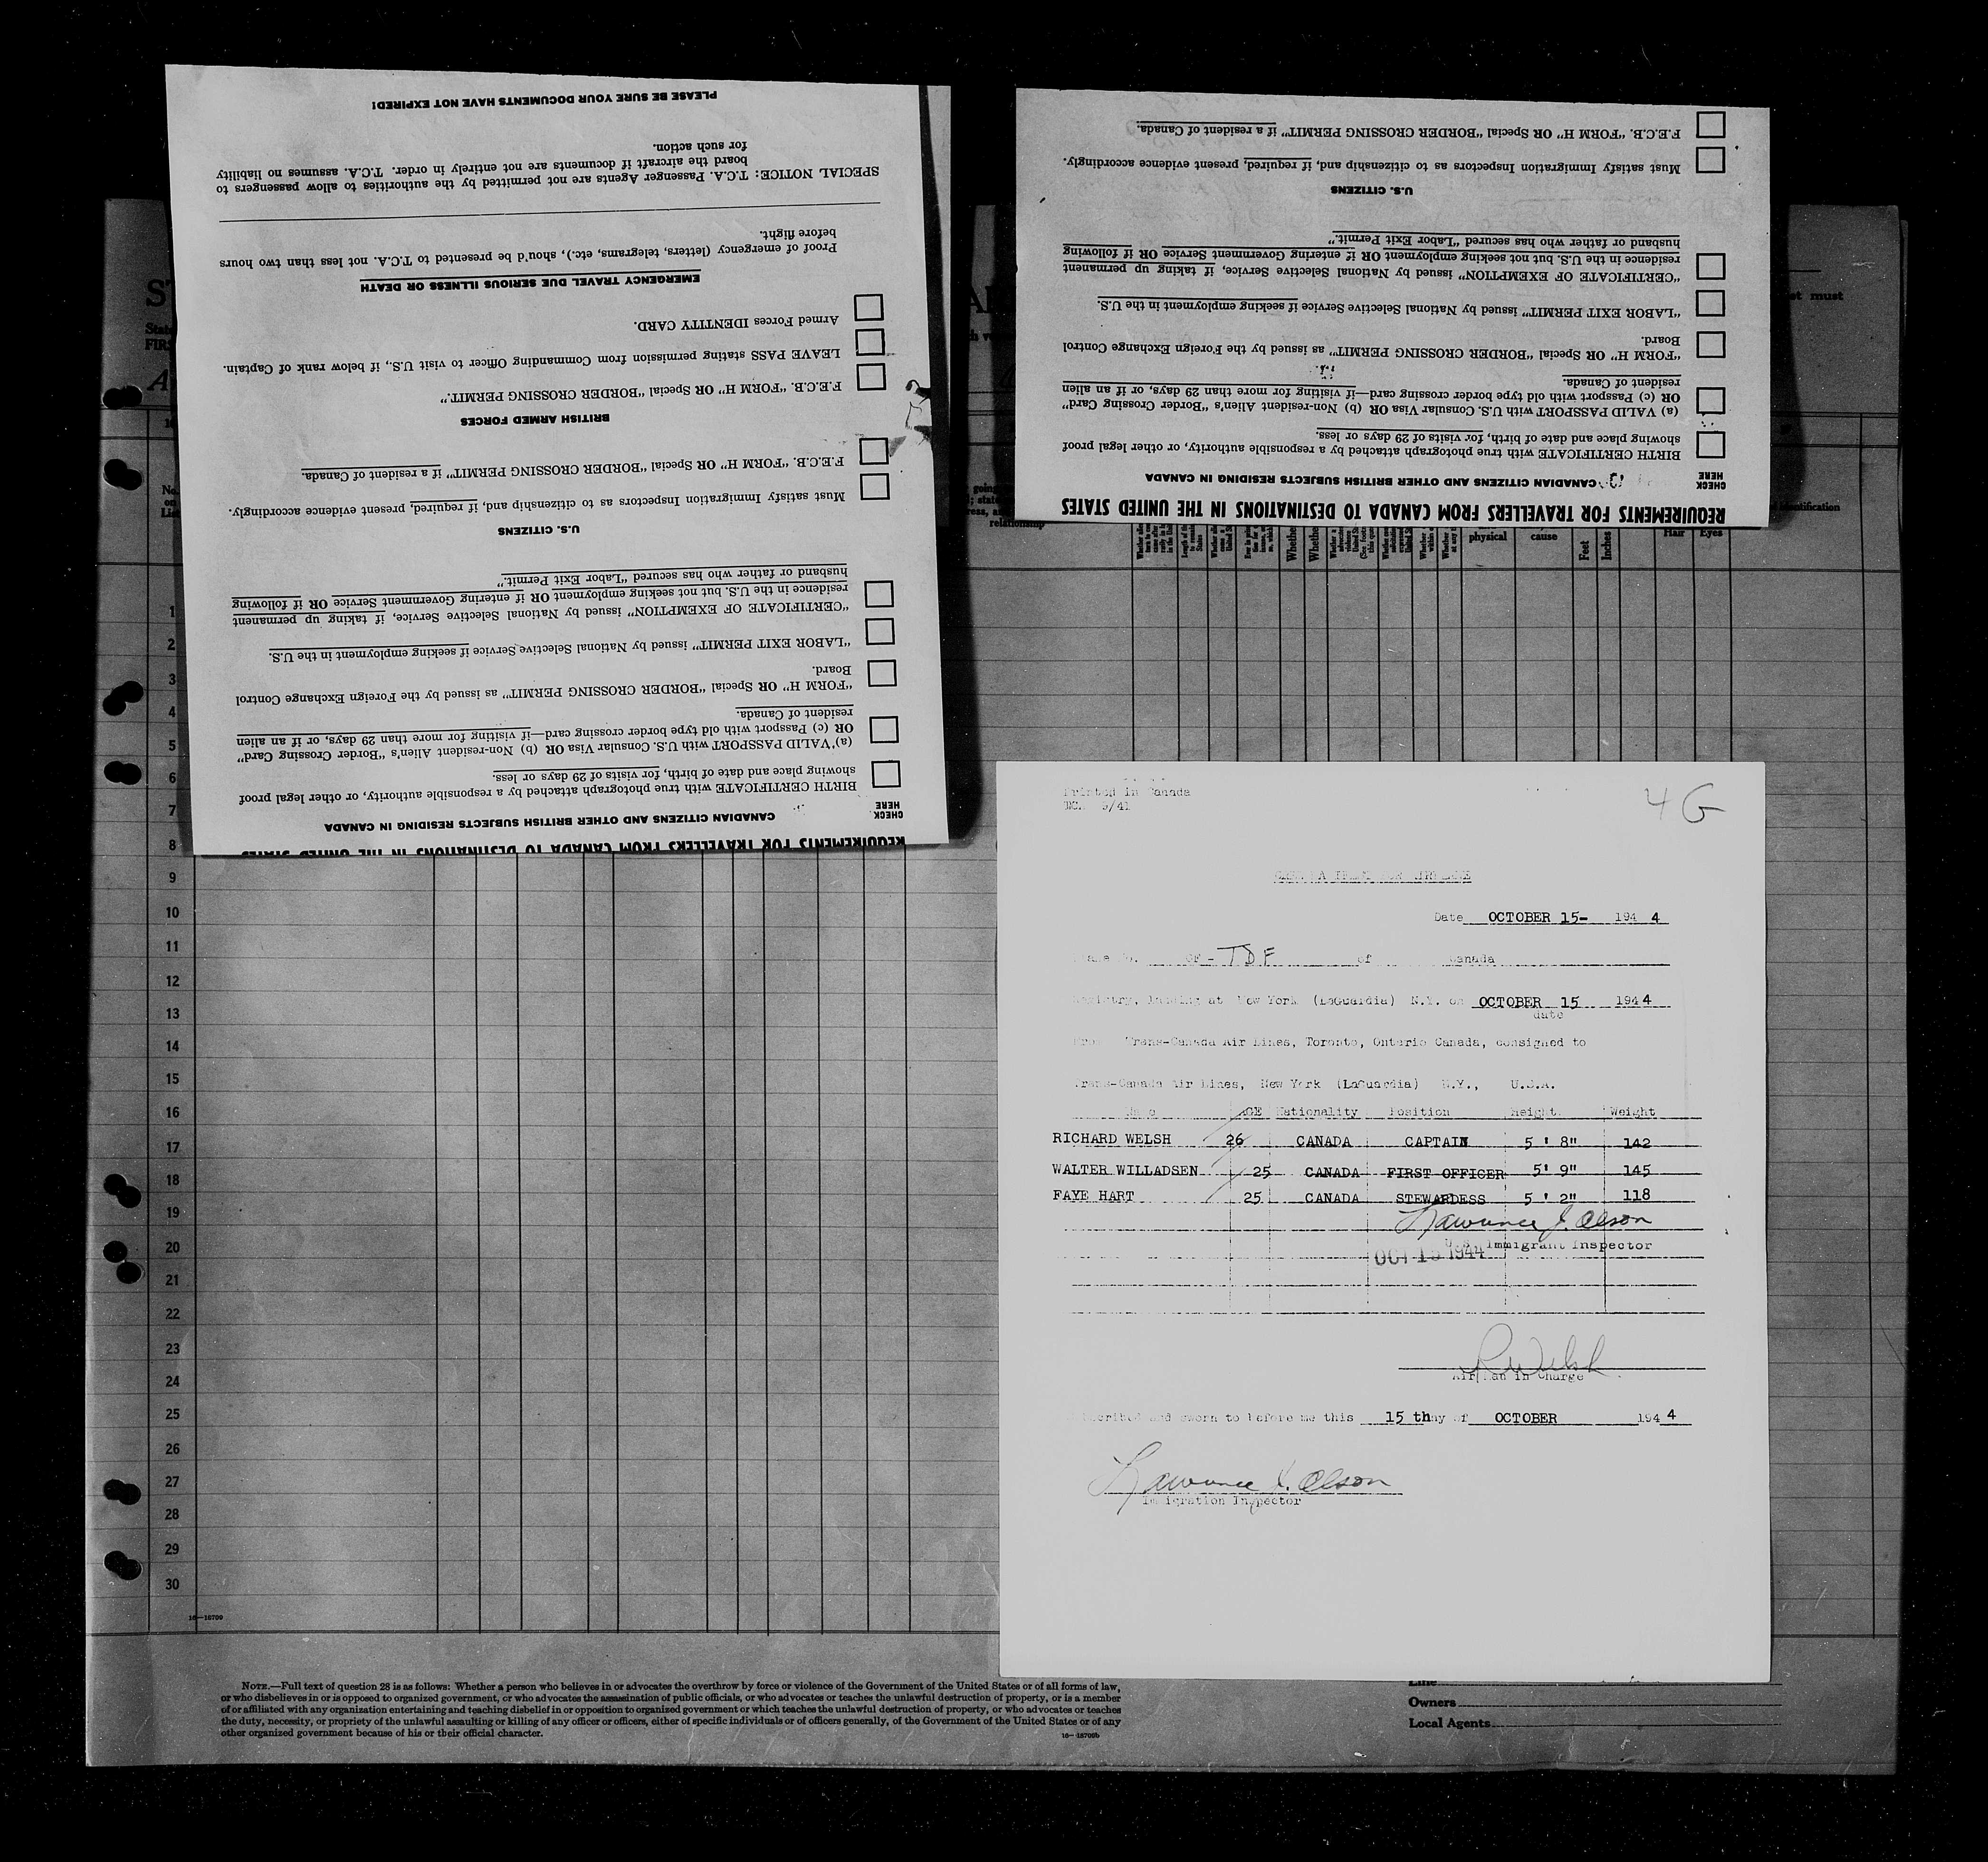 PLEASE BE SURE YOUR DOCUMENTS HAVE NOT EXPIRED!
SPECIAL NOTICE: T.C.A. Passenger Agents are not permitted by the authorities to allow passengers to
board the aircraft if documents are not entirely in order. T.C.A. assumes no liability
for such action.
Proof of emergency (letters, telegrams, etc.), should be presented to T.C.A. not less than two hours
before flight.
EMERGENCY TRAVEL DUE SERIOUS ILLNESS OR DEATH
Armed Forces IDENTITY CARD.
LEAVE PASS stating permission from Commanding Officer to visit U.S., if below rank of Captain.
F.E.C.B. "FORM H" OR Special "BORDER CROSSING PERMIT."
BRITISH ARMED FORCES
F.E.C.B. "FORM H" OR Special "BORDER CROSSING PERMIT" if a resident of Canada.
Must satisfy Immigration Inspectors as to citizenship and, if required, present evidence accordingly.
U.S. CITIZENS
"CERTIFICATE OF EXEMPTION" issued by National Selective Service, if taking up permanent
residence in the U.S. but not seeking employment OR if entering Government Service OR if following
husband or father who has secured "Labor Exit Permit."
"LABOR EXIT PERMIT" issued by National Selective Service if seeking employment in the U.S.
"FORM H" OR Special "BORDER CROSSING PERMIT" as issued by the Foreign Exchange Control
Board.
(a) VALID PASSPORT with U.S. Consular Visa OR (b) Non-resident Alien's "Border Crossing Card"
OR (c) Passport with old type border crossing card—if visiting for more than 29 days, or if an alien
resident of Canada.
BIRTH CERTIFICATE with true photograph attached by a responsible authority, or other legal proof
showing place and date of birth, for visits of 29 days or less.
CHECK
HERE
CANADIAN CITIZENS AND OTHER BRITISH SUBJECTS RESIDING IN CANADA
REQUIREMENTS FOR TRAVELLERS FROM CANADA TO DESTINATIONS IN THE UNITED STATES
F.E.C.B. "FORM H" OR Special "BORDER CROSSING PERMIT" if a resident of Canada.
Must satisfy Immigration Inspectors as to citizenship and, if required, present evidence accordingly.
U.S. CITIZENS
"CERTIFICATE OF EXEMPTION" issued by National Selective Service, if taking up permanent
residence in the U.S. but not seeking employment OR if entering Government Service OR if following
husband or father who has secured "Labor Exit Permit."
"LABOR EXIT PERMIT" issued by National Selective Service if seeking employment in the U.S.
"FORM H" OR Special "BORDER CROSSING PERMIT" as issued by the Foreign Exchange Control
Board.
(a) VALID PASSPORT with U.S. Consular Visa OR (b) Non-resident Alien's "Border Crossing Card"
OR (c) Passport with old type border crossing card—if visiting for more than 29 days, or if an alien
resident of Canada.
BIRTH CERTIFICATE with true photograph attached by a responsible authority, or other legal proof
showing place and date of birth, for visits of 29 days or less.
CHECK
HERE
CANADIAN CITIZENS AND OTHER BRITISH SUBJECTS RESIDING IN CANADA
REQUIREMENTS FOR TRAVELLERS FROM CANADA TO DESTINATIONS IN THE UNITED STATES
must
relationship
physical
cause
Feet
Inches
Hair
Eyes
1
2
3
4
5
6
7
8
9
10
11
12
13
14
15
16
17
18
19
20
21
22
23
24
25
26
27
28
29
30
16—18709
Printed in Canada
9/41
4 G
Date OCTOBER 15- 194 4
CF- TDF of Canada
Registry, landing at New York (LaGuardia) N.Y. on OCTOBER 15 1944
date
From Trans-Canada Air Lines, Toronto, Ontario Canada, consigned to
Trans-Canada Air Lines, New York (LaGuardia) N.Y., U.S.A.
Name AGE Nationality Position Height Weight
RICHARD WELSH 26 CANADA CAPTAIN 5 ' 8" 142
WALTER WILLADSEN 25 CANADA FIRST OFFICER 5' 9" 145
FAYE HART 25 CANADA STEWARDESS 5 ' 2" 118
Lawrence J. Olson
U.S. Immigrant Inspector
OCT 15 1944
R Welsh
Airman in Charge
Subscribed and sworn to before me this 15 th day of OCTOBER 194 4
Lawrence J. Olson
Immigration Inspector
NOTE.—Full text of question 28 is as follows: Whether a person who believes in or advocates the overthrow by force or violence of the Government of the United States or of all forms of law,
or who disbelieves in or is opposed to organized government, or who advocates the assassination of public officials, or who advocates or teaches the unlawful destruction of property, or is a member
of or affiliated with any organization entertaining and teaching disbelief in or opposition to organized government or which teaches the unlawful destruction of property, or who advocates or teaches
the duty, necessity, or propriety of the unlawful assaulting or killing of any officer or officers, either of specific individuals or of officers generally, of the Government of the United States or of any
other organized government because of his or their official character.
16—18709b
Line
Owners
Local Agents